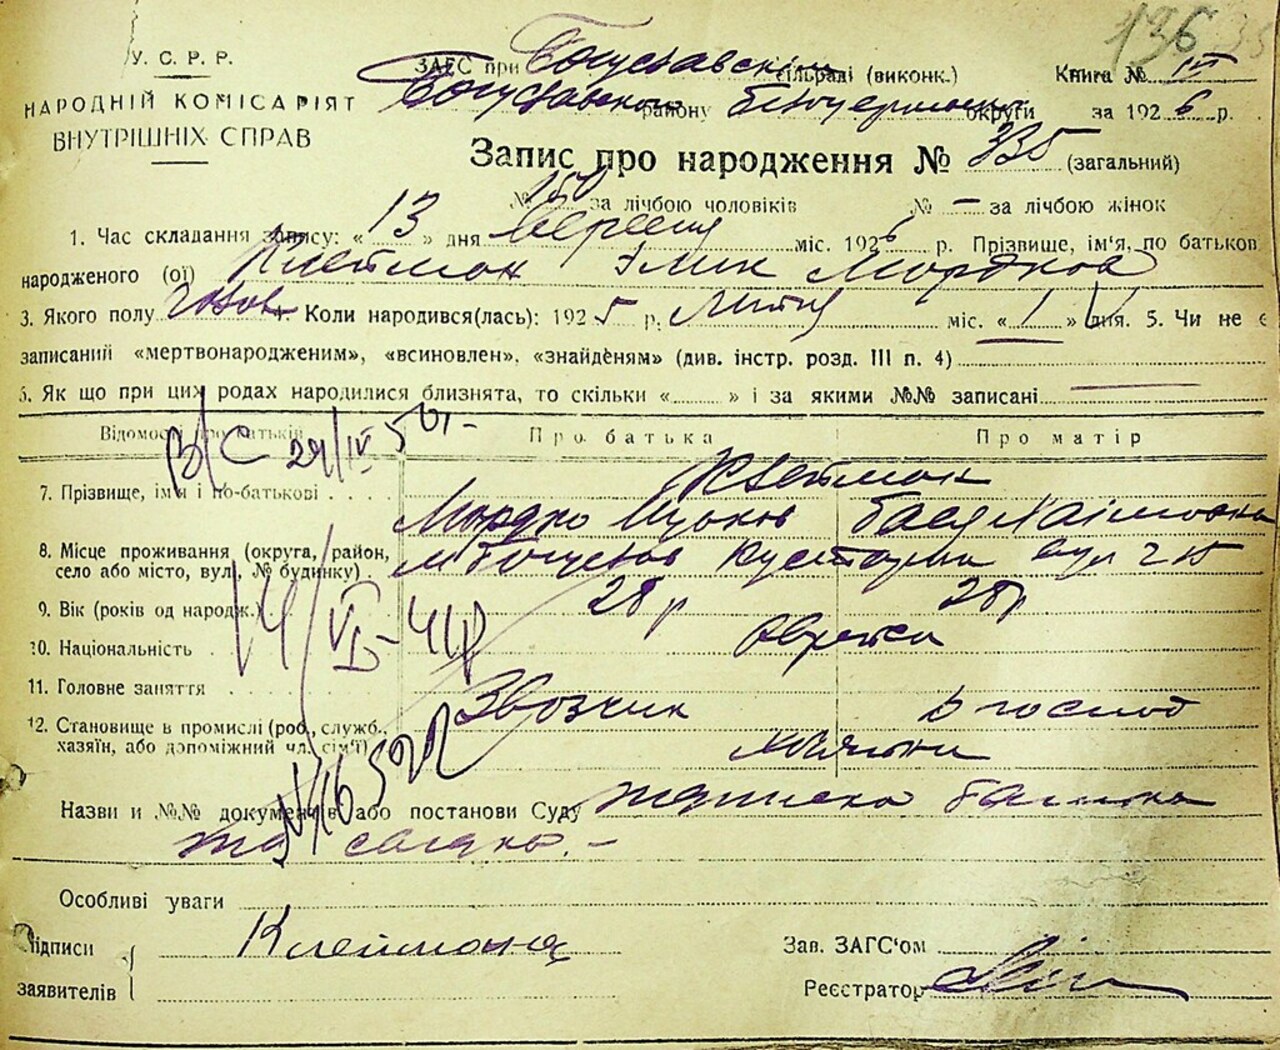 136
У. С. Р. Р.
НАРОДНІЙ КОМІСАРІЯТ
ВНУТРІШНІХ СПРАВ
ЗАГС при Богуславскім сільраді (виконк.) Книга № III
Богуславского району Білоцерківської округи за 1926 р.
Запис про народження № 335 (загальний)
№ 150 за лічбою чоловіків № — за лічбою жінок
1. Час складання запису: « 13 » дня Вересня міс. 1926 р. Прізвище, ім'я, по батьков
народженого (ої) Клейман Элик Мордков
3. Якого полу чолов 4. Коли народився(лась): 1925 р. Липня міс. « 1 » дня. 5. Чи не є
записаний «мертвонародженим», «всиновлен», «знайденям» (див. інстр. розд. III п. 4)
6. Як що при цих родах народилися близнята, то скільки « » і за якими №№ записані
Відомості про батьків Про батька Про матір
В/С 29/IV 5
7. Прізвище, ім'я і по-батькові Клейман
Мордко Ицьков Бася Хаімовна
8. Місце проживання (округа, район,
село або місто, вул., № будинку) м Богуслав Кустарна вул ч 15
9. Вік (років од народж.) 28 р 28 р
10. Національність Євреїи
14/VI-41р
11. Головне заняття Звозчик д господ
12. Становище в промислі (роб., служб.,
хазяїн, або допоміжний чл. сім'ї) хазяїни
Назви и №№ документів або постанови Суду записка батька
та
Особливі уваги
Підписи
заявителів
Клеймана
Зав. ЗАГС'ом
Реєстратор